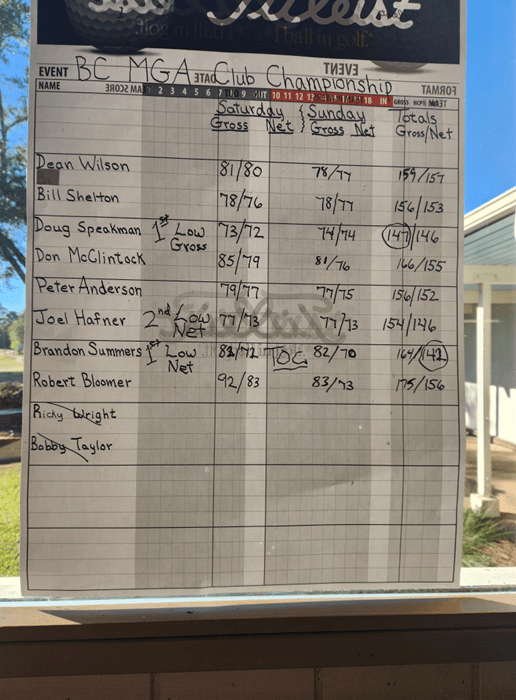 Titleist
#1 ball in golf.
EVENT BC MGA Club Championship DATE EVENT FORMAT
NAME TEAM SCORE 2 3 4 5 6 7 9 OUT 10 11 12 13 18 IN GROSS HCP TEAM
Saturday Sunday Totals
Gross Net Gross Net Gross/Net
Dean Wilson 81/80 78/77 159/157
Bill Shelton 78/76 78/77 156/153
Doug Speakman 1st Low Gross 73/72 74/74 147/146
Don McClintock 85/79 81/76 166/155
Peter Anderson 79/77 77/75 156/152
Joel Hafner 2nd Low Net 77/73 77/73 154/146
Brandon Summers 1st Low Net 82/72 TOC 82/70 164/142
Robert Bloomer 92/83 83/73 175/156
Ricky Wright
Bobby Taylor